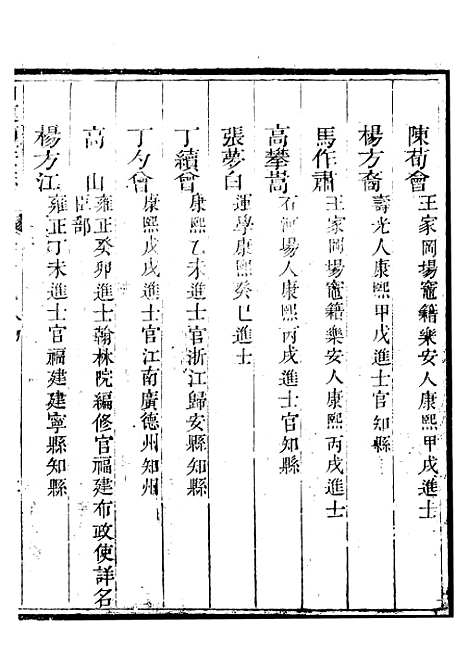 陳荀會 王家岡場竈籍樂安人康熙甲戌進士
楊方裔 壽光人康熙甲戌進士官知縣
馬作肅 王家岡場竈籍樂安人康熙丙戌進士
高攀嵩 石河場人康熙丙戌進士官知縣
張夢白 運學康熙癸巳進士
丁續會 康熙乙未進士官浙江歸安縣知縣
丁夕會 康熙戊戌進士官江南廣德州知州
高山 雍正癸卯進士翰林院編修官福建布政使詳名
臣部
楊方江 雍正丁未進士官福建建寧縣知縣